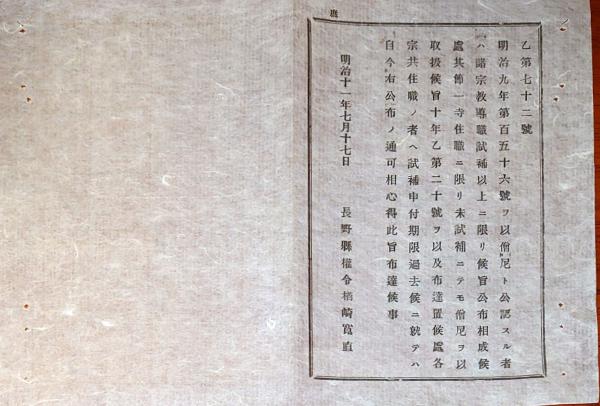 乙第七十二號
明治九年第百五十六號ヲ以僧尼ト公認スル者
ハ諸宗教導職試補以上ニ限リ候旨公布相成候
處其節一寺住職ニ限リ未試補ニテモ僧尼ヲ以
取扱候旨十年乙第二十號ヲ以及布達置候處各
宗共住職ノ者ヘ試補申付期限過去候ニ就テハ
自今右公布ノ通可相心得此旨布達候事
明治十一年七月十七日
長野縣權令楢崎寬直